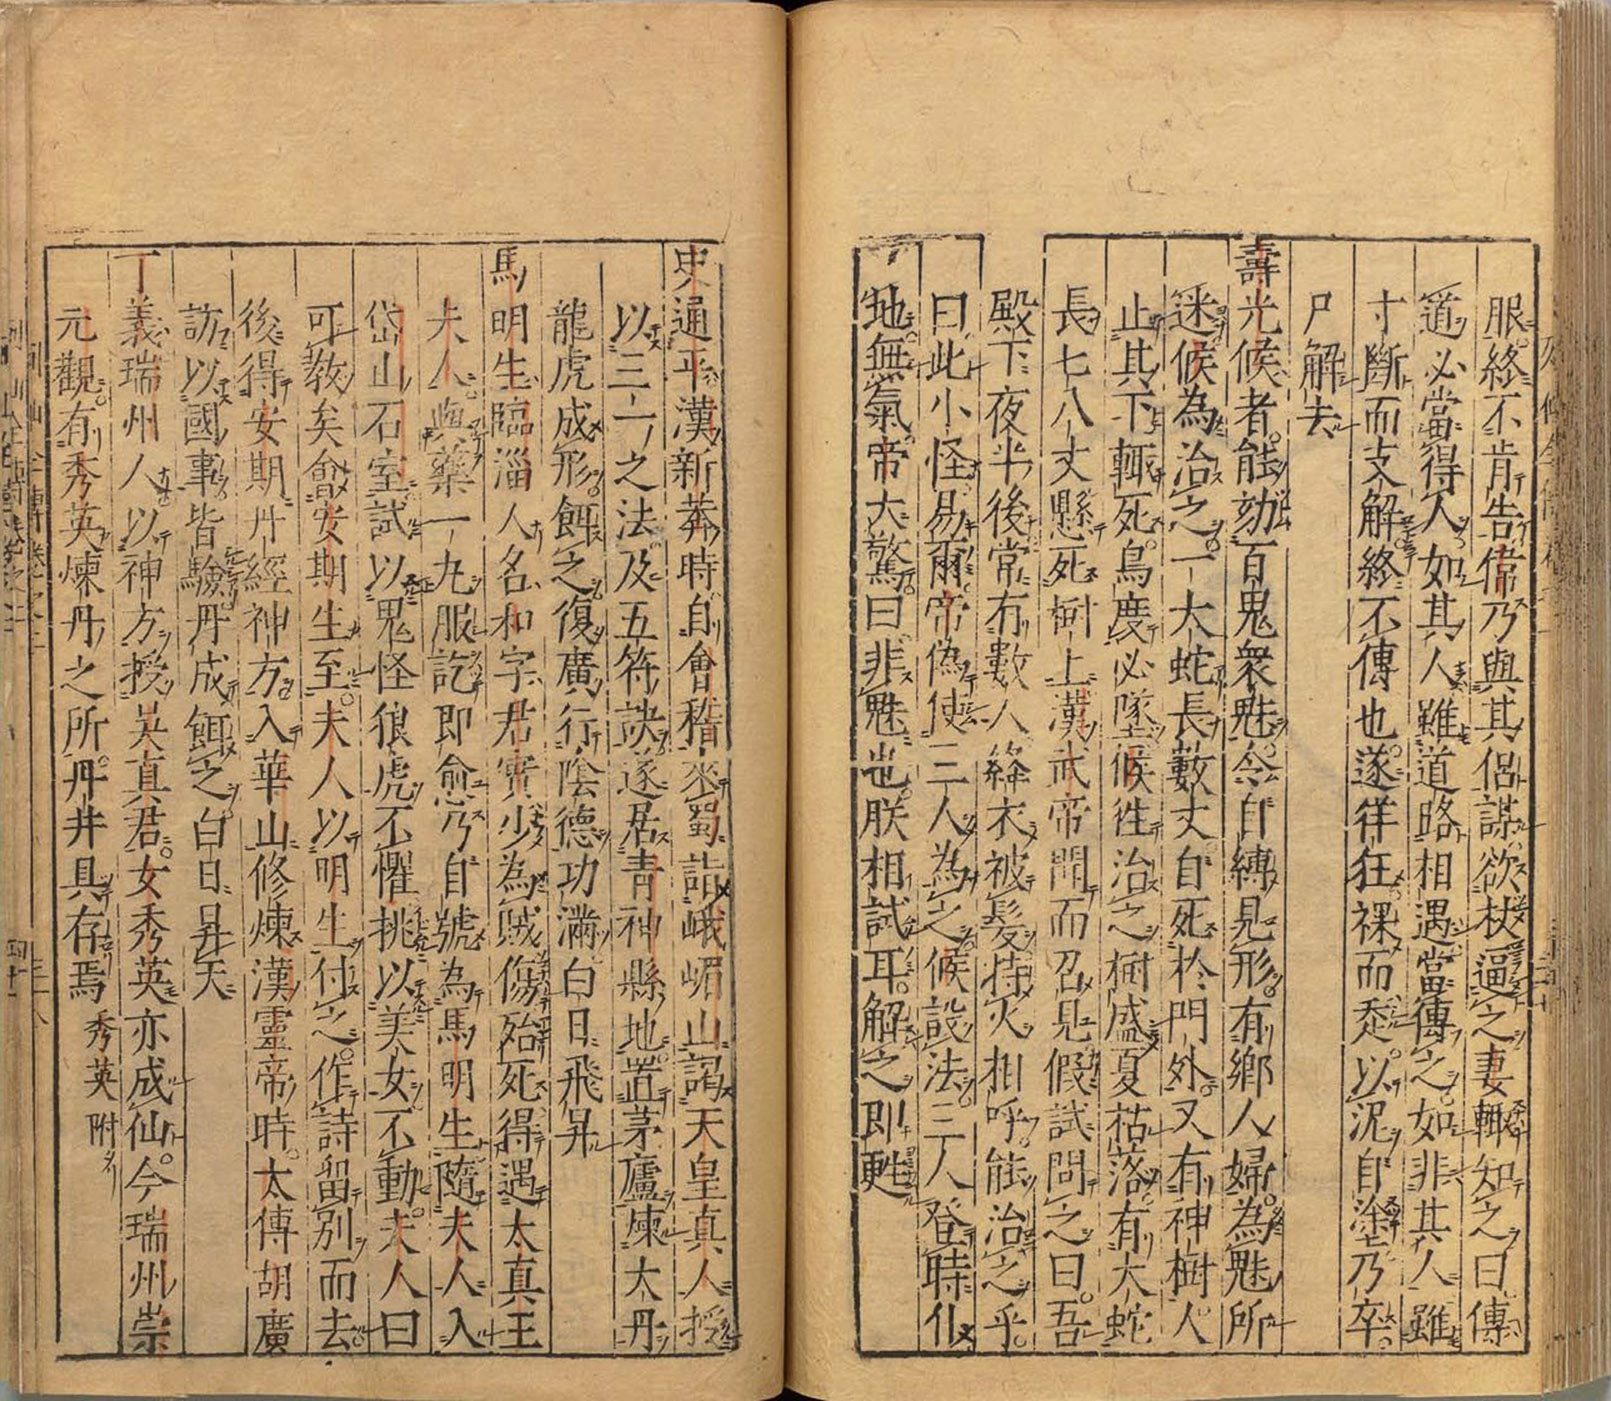 服終不肯告偉乃與其侶謀欲杖逼之妻輙知之曰傳
道必當得人如其人雖道路相遇當傳之如非其人雖
寸斷而支解終不傳也遂徉狂裸而走以泥自塗乃卒
尸解去
壽光候者能劾百鬼衆魅令自縛見形有鄉人婦為魅所
迷候為治之一大蛇長數丈自死於門外又有神樹人
止其下輙死鳥度必墜候徃治之樹盛夏枯落有大蛇
長七八丈懸死樹上漢武帝聞而召見假試問之曰吾
殿下夜半後常有數人絳衣被髮持火相呼能治之乎
曰此小怪易爾帝偽使三人為之候設法三人登時仆
地無氣帝大驚曰非魅也朕相試耳解之即甦
史通平漢新莽時自會稽來蜀詣峨嵋山謁天皇真人授
以三一之法及五符訣遂居青神縣地置茅廬煉大丹
龍虎成形餌之復廣行陰德功滿白日飛昇
馬明生臨淄人名和字君實少為賊傷殆死得遇太真王
夫人與藥一丸服訖即愈乃自號為馬明生隨夫人入
岱山石室試以鬼怪狼虎不懼挑以美女不動夫人曰
可敎矣會安期生至夫人以明生付之作詩留別而去
後得安期丹經神方入華山修煉漢靈帝時太傅胡廣
訪以國事皆驗丹成餌之白日昇天
丁義瑞州人以神方授吳真君女秀英亦成仙今瑞州崇
元觀有秀英煉丹之所丹井具存焉 秀英附